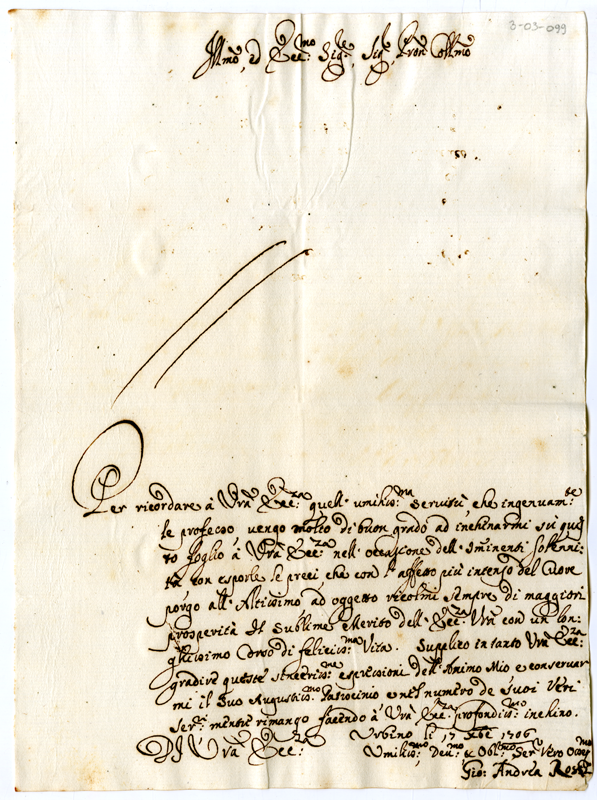 3-03-099
Ill:mo, ed Ecc:mo Sig:e, Sig:, Pron Col:mo
Per ricordare à Vrã Ecc:za quell' umiliss:ma servitù che ingenuam:te
le professo vengo molto di buon grado ad inchinarmi sù questo
foglio à Vrã Ecc:za nell' occasione dell' Iminenti solenni:
tà con esporle le preci che con l' affetto più intenso del Quore
porgo all' Altissimo ad oggetto ricolmi sempre di maggiori
prosperità Il sublime Merito dell' Ecc:za Vrã con un lon:
ghissimo Corso di feliciss:ma Vita. Supplico intanto Vrã Ecc:za
gradire queste sinceriss:me espressioni dell' Animo Mio e conservar
mi il Suo Augustiss:mo Patrocinio e nel numero de suoi Veri
Ser:ri mentre rimango facendo à Vrã Ecc:za profondiss:mo inchino.
Urbino li 17 Xbre 1706
DI Vrã Ecc:za
Umiliss:mo Dev:mo et Obl:mo Ser:e Vero
Gio: Andrea